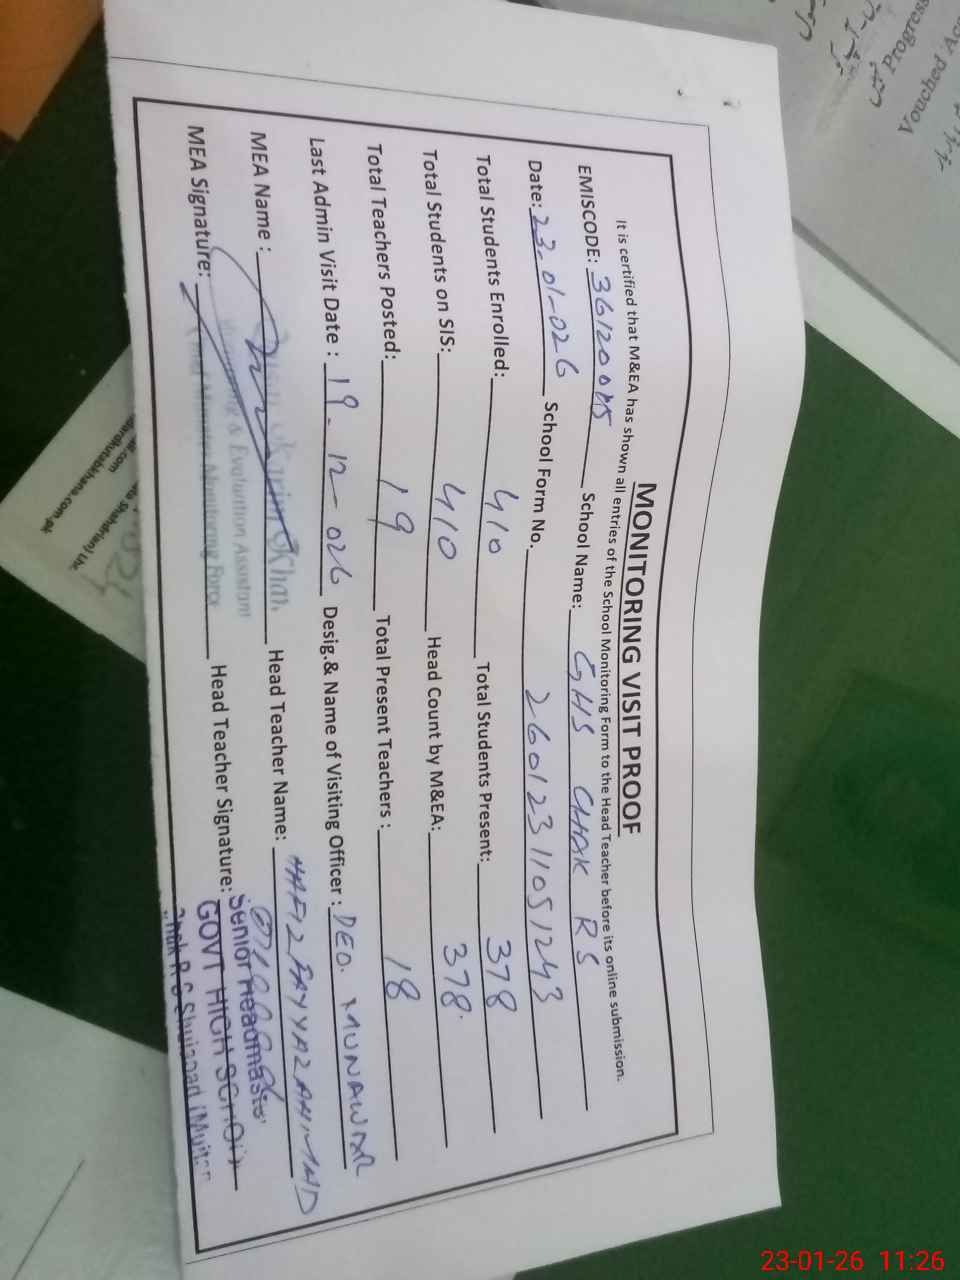 MONITORING VISIT PROOF
It is certified that M&EA has shown all entries of the School Monitoring Form to the Head Teacher before its online submission.
EMISCODE: School Name: GHS CHAK RS
Date: 23-01-026 School Form No. 26012311051243
Total Students Enrolled: 410 Total Students Present: 378
Total Students on SIS: 410 Head Count by M&EA: 378.
Total Teachers Posted: 19 Total Present Teachers : 18
Last Admin Visit Date : 19-12-026 Desig.& Name of Visiting Officer : DEO. MUNAWAR
MEA Name : Khan Head Teacher Name: HAFIZ FAYYAZ AHMAD
& Evaluation Assistant
MEA Signature: Monitoring Force Head Teacher Signature:
Senior Headmaster
GOVT HIGH SCHOOL
Chak R.S Shujabad (Multan
Progress
Vouched
.com.pk
23-01-26 11:26